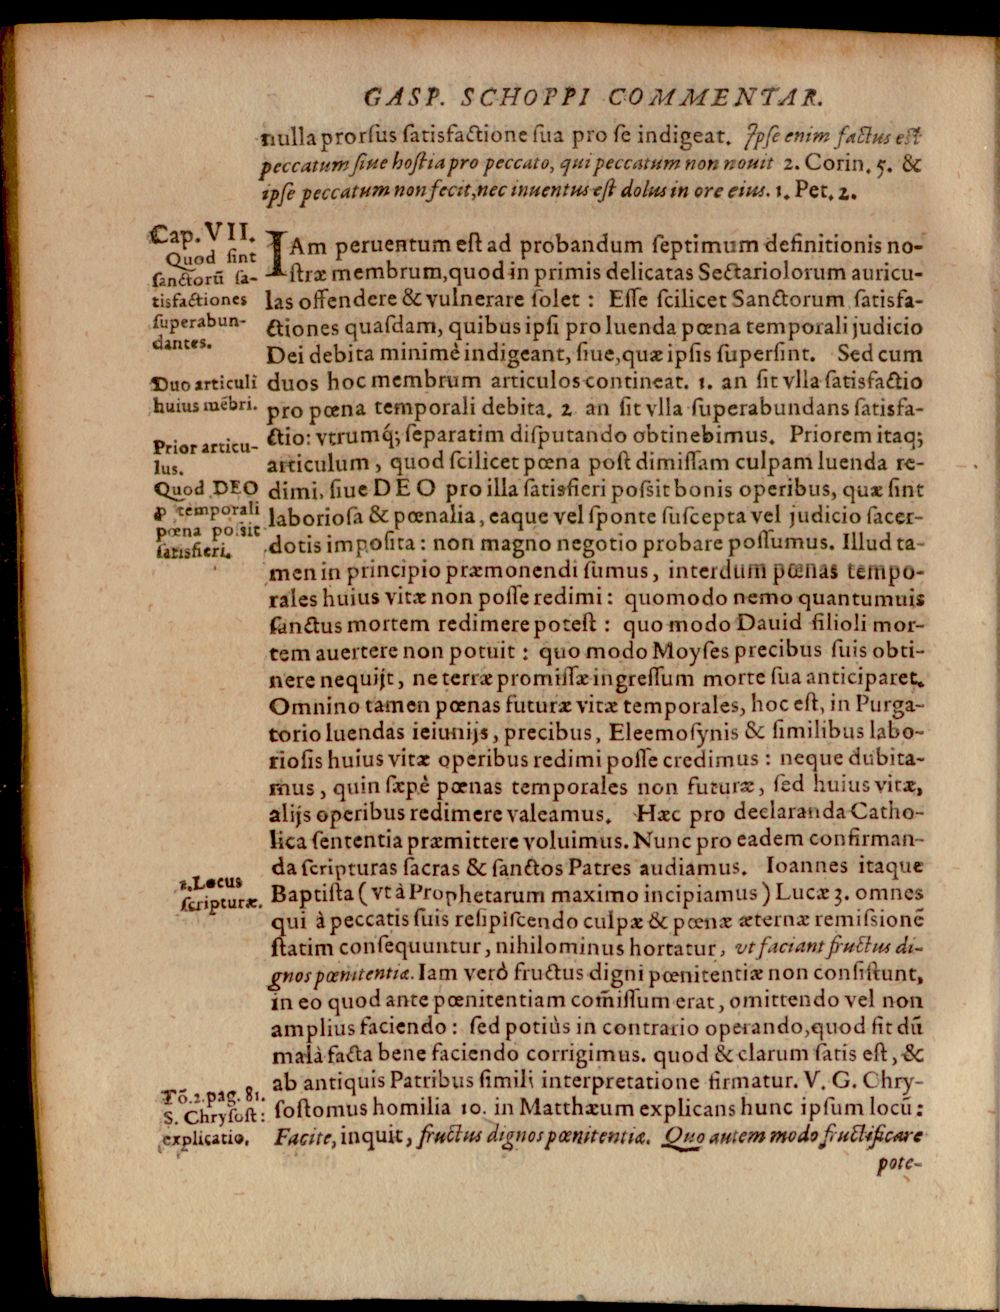 GASP. SCHOPPI COMMENTAR.
nulla prorſus ſatisfactione ſua pro ſe indigeat. Ipſe enim factus eſt
peccatum ſiue hoſtia pro peccato, qui peccatum non nouit 2. Corin. 5. &
ipſe peccatum non fecit, nec inuentus eſt dolus in ore eius. 1. Pet. 2.
Cap. VII.
Quod ſint
ſanctorũ ſa-
tisfactiones
ſuperabun-
dantes.
IAm peruentum eſt ad probandum ſeptimum definitionis no-
ſtræ membrum, quod in primis delicatas Sectariolorum auricu-
las offendere & vulnerare ſolet : Eſſe ſcilicet Sanctorum ſatisfa-
ctiones quaſdam, quibus ipſi pro luenda pœna temporali judicio
Dei debita minimè indigeant, ſiue, quæ ipſis ſuperſint. Sed cum
Duo articuli
huius mẽbri.
duos hoc membrum articulos contineat. 1. an ſit vlla ſatisfactio
pro pœna temporali debita. 2 an ſit vlla ſuperabundans ſatisfa-
ctio: vtrumq́; ſeparatim diſputando obtinebimus. Priorem itaq;
Prior articu-
lus.
Quod DEO
ꝓ temporali
pœna poſsit
ſatisfieri.
articulum, quod ſcilicet pœna poſt dimiſſam culpam luenda re-
dimi, ſiue DEO pro illa ſatisfieri poſsit bonis operibus, quæ ſint
laborioſa & pœnalia, eaque vel ſponte ſuſcepta vel judicio ſacer-
dotis impoſita : non magno negotio probare poſſumus. Illud ta-
men in principio præmonendi ſumus, interdum pœnas tempo-
rales huius vitæ non poſſe redimi : quomodo nemo quantumuis
ſanctus mortem redimere poteſt : quo modo Dauid filioli mor-
tem auertere non potuit : quo modo Moyſes precibus ſuis obti-
nere nequijt, ne terræ promiſſæ ingreſſum morte ſua anticiparet.
Omnino tamen pœnas futuræ vitæ temporales, hoc eſt, in Purga-
torio luendas ieiunijs, precibus, Eleemoſynis & ſimilibus labo-
rioſis huius vitæ operibus redimi poſſe credimus : neque dubita-
mus, quin ſæpè pœnas temporales non futuræ, ſed huius vitæ,
alijs operibus redimere valeamus. Hæc pro declaranda Catho-
lica ſententia præmittere voluimus. Nunc pro eadem confirman-
da ſcripturas ſacras & ſanctos Patres audiamus. Ioannes itaque
1. Locus
ſcripturæ.
Baptiſta ( vt à Prophetarum maximo incipiamus ) Lucæ 3. omnes
qui à peccatis ſuis reſipiſcendo culpæ & pœnæ æternæ remiſsionẽ
ſtatim conſequuntur, nihilominus hortatur, vt faciant fructus di-
gnos pœnitentiæ. Iam verò fructus digni pœnitentiæ non conſiſtunt,
in eo quod ante pœnitentiam com̃iſſum erat, omittendo vel non
amplius faciendo : ſed potiùs in contrario operando, quod fit dũ
malà facta bene faciendo corrigimus. quod & clarum ſatis eſt, &
ab antiquis Patribus ſimili interpretatione firmatur. V. G. Chry-
Tõ. 2. pag. 81.
S. Chryſoſt:
explicatio.
ſoſtomus homilia 10. in Matthæum explicans hunc ipſum locũ:
Facite, inquit, fructus dignos pœnitentiæ. Quo autem modo fructificare
pote-